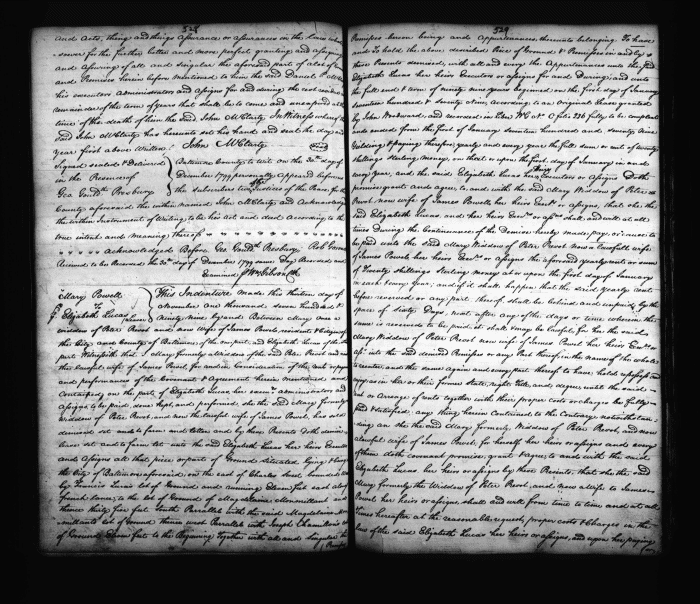 528
and Acts, thing and things Assurance or assurances in the Law
for the further better and more perfect granting and assigning
and Assuring of all and Singular the aforesaid part of a lot of
and Premises herein before Mentioned to him the said Daniel
his executors Administrators and Assigns for and during the rest residue
remainder of the term of years that shall be to come and unexpired at the
time of the death of him the said John McClarty. In Witness whereof the
said John McClarty has hereunto set his hand and seal the day and
year first above Written. John McClarty
Signed sealed & Delivered
in the Presence of
Geo Presbury
Baltimore County to wit on the 30th day of
December 1799 personally appeared before us
the subscribers two Justices of the Peace for the
County aforesaid the within named John McClarty and Acknowledged
the within Instrument of Writing to be his Act and deed According to the
true intent and meaning thereof
Acknowledged Before Geo Presbury Rob
Received to be Recorded the 30th day of December 1799 same Day Recorded and
Examined Wm Gibson Clk
Mary Powell
To
Elizabeth Lucas
This Indenture made this thirtieth day of
November one thousand seven hundred &
Ninety Nine by and Between Mary
widdow of Peter Perot and now wife of James Powel, resident & Citizen of
the City and County of Baltimore of the one part and Elizabeth Lucas of the
part Witnesseth that Mary formerly a Widdow of the said Peter Perot and now
the lawful wife of James Perot for and in Consideration of the rent
and performances of the Covenant & Agreement herein mentioned and
Contained, on the part of Elizabeth Lucas her administrators and
Assigns to be paid, done kept and performed, she the said Mary formerly
Widdow of Peter Perot and now the lawful wife of James Powel, has sold
demised set and to farm and letten and by these Presents doth demise
lease set and to farm let unto the said Elizabeth Lucas her heirs
and Assigns all that piece or parts of Ground Situated, lying & being
the City of Baltimore aforesaid on the east of Charles Street, bounded
by Francis Lucas lot of Ground and running Eleven feet and
french lane, to the lot of Ground of Magdelaine Monmillant and
thence thirty five feet South Parrallel with the said Magdelaine
lot of Ground thence west Parrallel with Joseph
of Ground Eleven feet to the Beginning Together with all and Singular the
529
Premises hereon being and Appurtenances thereunto belonging To have
and To hold the above described Piece of Ground & Premises in and by
these Presents demised, with all and every the Appurtenances unto the said
Elizabeth Lucas her heirs Executors or assigns for and During, and unto
the full end & term of ninety nine years beginned on the first day of January
Seventeen hundred & Seventy Nine, according to an Original Lease granted
by John Woodward, and recorded in Liber W G No C folio 226 fully to be compleat
and ended from the first of January Seventeen hundred and seventy Nine
Yielding & paying therefore yearly and every year the full sum or rent of twenty
shillings Sterling Money, on that is upon the first day of January in and
every year, and the said Elizabeth Lucas her heirs Executors or Assigns doth
promise grant and agree, to, and with the said Mary Widdow of Peter
Perot now wife of James Powel her heirs Exrs or Assigns, that she the
said Elizabeth Lucas, and her heirs Exrs or assns shall and will at all
times During the Continuance of the Demise hereby made, pay, or cause to
be paid unto the said Mary Widdow of Peter Perot now a lawfull wife
of James Powel her heirs Exrs or Assigns the aforesaid yearly rent or sum
of Twenty shillings Sterling money at or upon the first day of January
in each & every year, and if it shall happen that the said yearly rent
before reserved or any part thereof shall be behind and unpaid by the
space of Sixty Days, Next after any of the days or time whereon the
same is reserved to be paid, it shall & may be lawful for her the said
Mary Widdow of Peter Perot now wife of James Powel her heirs Exrs
into the said demised Premises or any Part thereof in the name of the whole
to enter and the same again and every part thereof to have hold repossess and
enjoy as in her or their former state, right title, and degree, until the said
or Arrerage of rent together with their proper costs or charges be fully
and satisfied: any thing herein Contained to the Contrary notwithstanding
an she the said Mary formerly Widdow of Peter Perot, and now
a lawful wife of James Perot, for herself her heirs or assigns and every
of them doth covenant promise, grant & agree to and with the said
Elizabeth Lucas her heirs or assigns by these Presents, that she the said
Mary formerly the Widdow of Peter Perot, and now a wife to James
Perot her heirs or assigns, shall and will from time to time and at all
times hereafter at the reasonable request, proper costs & Charges in the
law of the said Elizabeth Lucas her heirs or assigns, and upon her paying